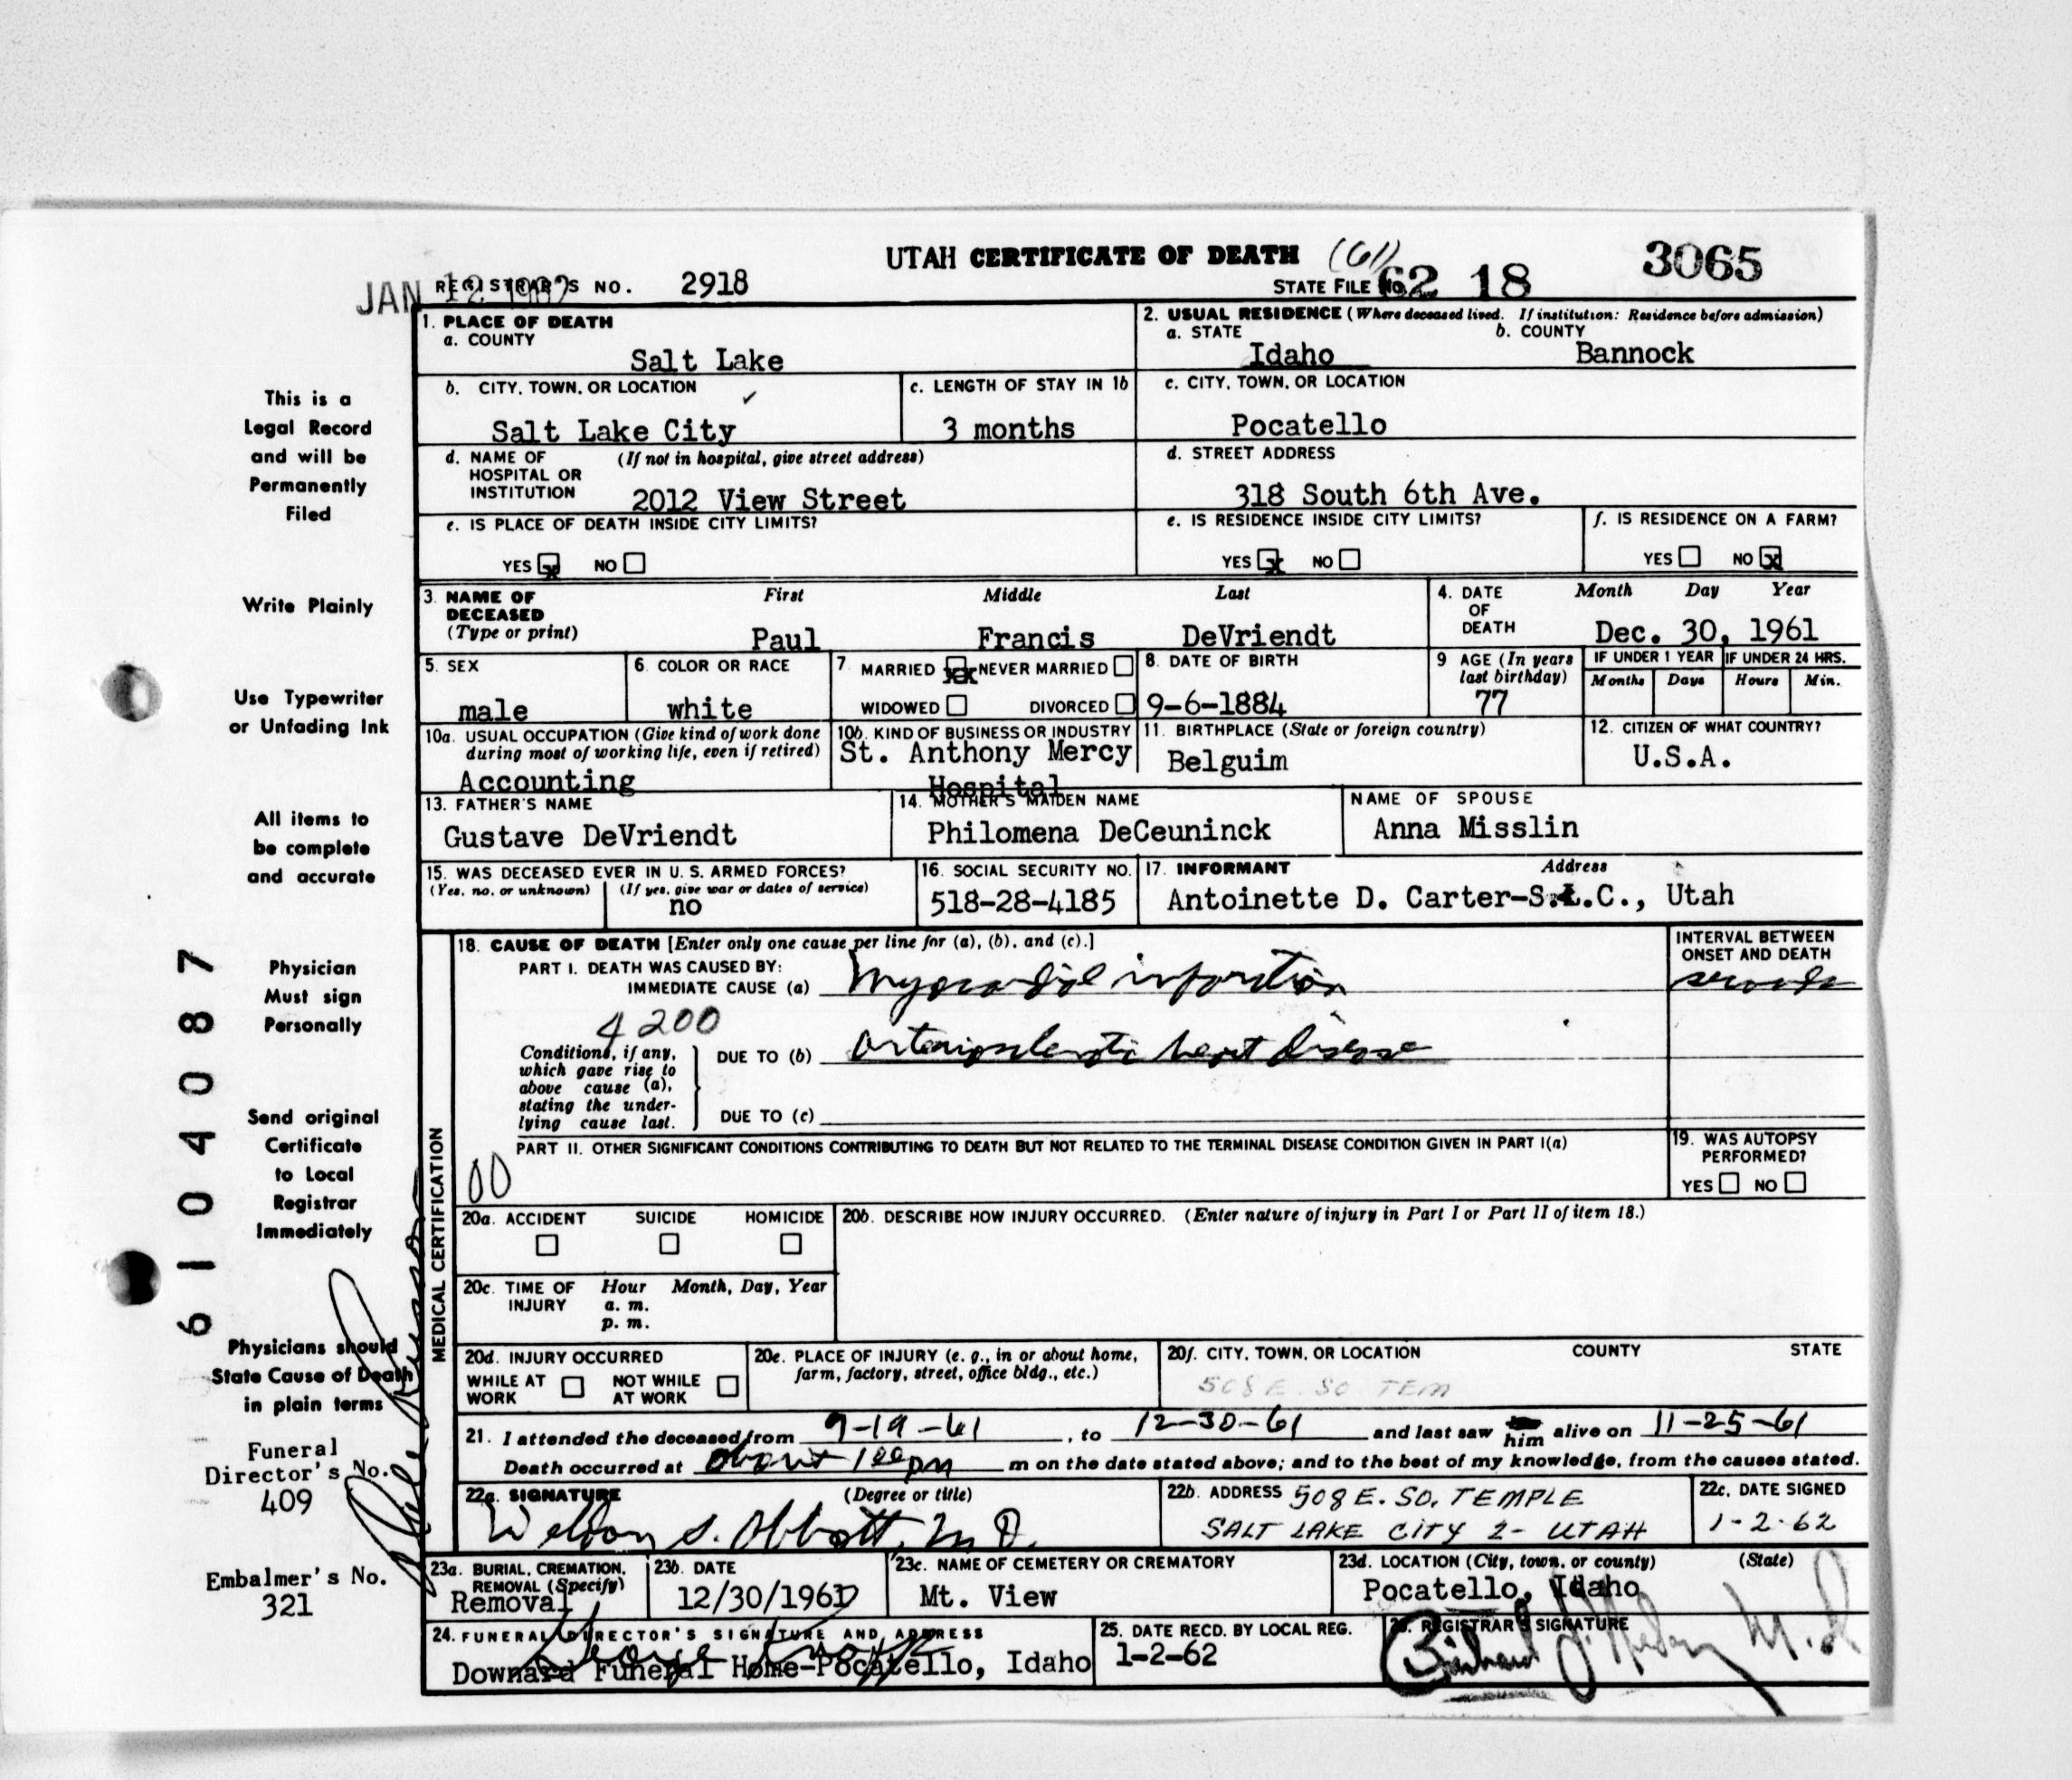 UTAH CERTIFICATE OF DEATH (61) 3065
JAN 12 1962 REGISTRAR'S NO. 2918 STATE FILE No. 62 18
1. PLACE OF DEATH
a. COUNTY
Salt Lake
2. USUAL RESIDENCE (Where deceased lived. If institution: Residence before admission)
a. STATE b. COUNTY
Idaho Bannock
b. CITY, TOWN, OR LOCATION ✓
Salt Lake City
c. LENGTH OF STAY IN 1b
3 months
c. CITY, TOWN, OR LOCATION
Pocatello
d. NAME OF (If not in hospital, give street address)
HOSPITAL OR
INSTITUTION 2012 View Street
d. STREET ADDRESS
318 South 6th Ave.
e. IS PLACE OF DEATH INSIDE CITY LIMITS?
YES x NO
e. IS RESIDENCE INSIDE CITY LIMITS?
YES x NO
f. IS RESIDENCE ON A FARM?
YES NO x
3. NAME OF First Middle Last
DECEASED
(Type or print) Paul Francis DeVriendt
4. DATE Month Day Year
OF
DEATH Dec. 30, 1961
5. SEX
male
6. COLOR OR RACE
white
7. MARRIED xx NEVER MARRIED
WIDOWED DIVORCED
8. DATE OF BIRTH
9-6-1884
9 AGE (In years
last birthday)
77
IF UNDER 1 YEAR IF UNDER 24 HRS.
Months Days Hours Min.
10a. USUAL OCCUPATION (Give kind of work done
during most of working life, even if retired)
Accounting
10b. KIND OF BUSINESS OR INDUSTRY
St. Anthony Mercy
Hospital
11. BIRTHPLACE (State or foreign country)
Belguim
12. CITIZEN OF WHAT COUNTRY?
U.S.A.
13. FATHER'S NAME
Gustave DeVriendt
14. MOTHER'S MAIDEN NAME
Philomena DeCeuninck
NAME OF SPOUSE
Anna Misslin
15. WAS DECEASED EVER IN U. S. ARMED FORCES?
(Yes, no, or unknown) (If yes, give war or dates of service)
no
16. SOCIAL SECURITY NO.
518-28-4185
17. INFORMANT Address
Antoinette D. Carter-S.L.C., Utah
MEDICAL CERTIFICATION
18. CAUSE OF DEATH [Enter only one cause per line for (a), (b), and (c).]
PART I. DEATH WAS CAUSED BY:
IMMEDIATE CAUSE (a) Myocardial infarction
INTERVAL BETWEEN
ONSET AND DEATH
seconds
4200
Conditions, if any,
which gave rise to
above cause (a),
stating the under-
lying cause last.
DUE TO (b) arteriosclerotic heart disease
DUE TO (c)
PART II. OTHER SIGNIFICANT CONDITIONS CONTRIBUTING TO DEATH BUT NOT RELATED TO THE TERMINAL DISEASE CONDITION GIVEN IN PART I(a)
00
19. WAS AUTOPSY
PERFORMED?
YES NO
20a. ACCIDENT SUICIDE HOMICIDE
20b. DESCRIBE HOW INJURY OCCURRED. (Enter nature of injury in Part I or Part II of item 18.)
20c. TIME OF Hour Month, Day, Year
INJURY a. m.
p. m.
20d. INJURY OCCURRED
WHILE AT NOT WHILE
WORK AT WORK
20e. PLACE OF INJURY (e. g., in or about home,
farm, factory, street, office bldg., etc.)
20f. CITY, TOWN, OR LOCATION COUNTY STATE
508 E SO TEM
21. I attended the deceased from 9-19-61, to 12-30-61 and last saw him alive on 11-25-61
Death occurred at about 1 00 pm m on the date stated above; and to the best of my knowledge, from the causes stated.
22a. SIGNATURE (Degree or title)
Weldon S. Abbott, M.D.
22b. ADDRESS 508 E. SO. TEMPLE
SALT LAKE CITY 2- UTAH
22c. DATE SIGNED
1-2-62
23a. BURIAL, CREMATION,
REMOVAL (Specify)
Removal
23b. DATE
12/30/1961
23c. NAME OF CEMETERY OR CREMATORY
Mt. View
23d. LOCATION (City, town, or county) (State)
Pocatello, Idaho
24. FUNERAL DIRECTOR'S SIGNATURE AND ADDRESS
George
Downard Funeral Home-Pocatello, Idaho
25. DATE RECD. BY LOCAL REG.
1-2-62
26. REGISTRAR'S SIGNATURE
This is a
Legal Record
and will be
Permanently
Filed
Write Plainly
Use Typewriter
or Unfading Ink
All items to
be complete
and accurate
Physician
Must sign
Personally
Send original
Certificate
to Local
Registrar
Immediately
Physicians should
State Cause of Death
in plain terms
Funeral
Director's No.
409
Embalmer's No.
321
61 04087